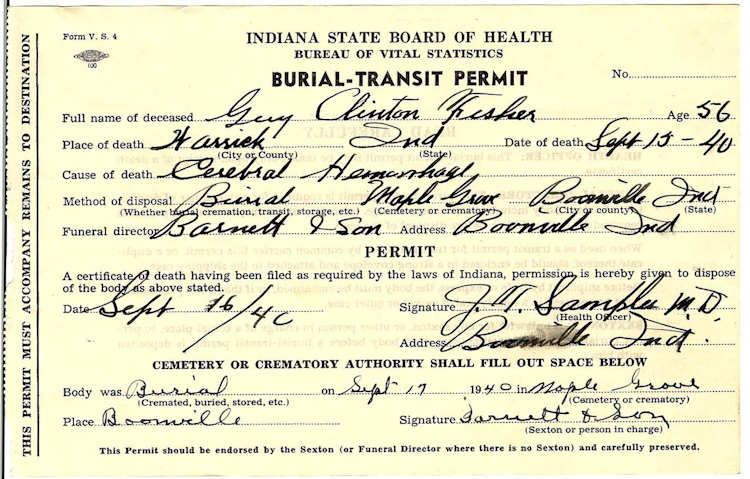 Form V. S. 4
100
INDIANA STATE BOARD OF HEALTH
BUREAU OF VITAL STATISTICS
BURIAL-TRANSIT PERMIT
No.
Full name of deceased Guy Clinton Fisher Age 56
Place of death Warrick Ind Date of death Sept 15 - 40
(City or County) (State)
Cause of death Cerebral Hemorrhage
Method of disposal Burial Maple Grove Boonville Ind
(Whether burial cremation, transit, storage, etc.) (Cemetery or crematory) (City or county) (State)
Funeral director Barnett & Son Address Boonville Ind
PERMIT
A certificate of death having been filed as required by the laws of Indiana, permission is hereby given to dispose
of the body as above stated.
Date Sept 16/40 Signature J. T. Samples M.D.
(Health Officer)
Address Boonville Ind.
CEMETERY OR CREMATORY AUTHORITY SHALL FILL OUT SPACE BELOW
Body was Burial on Sept 17 1940 in Maple Grove
(Cremated, buried, stored, etc.) (Cemetery or crematory)
Place Boonville Signature Barnett & Son
(Sexton or person in charge)
This Permit should be endorsed by the Sexton (or Funeral Director where there is no Sexton) and carefully preserved.
THIS PERMIT MUST ACCOMPANY REMAINS TO DESTINATION